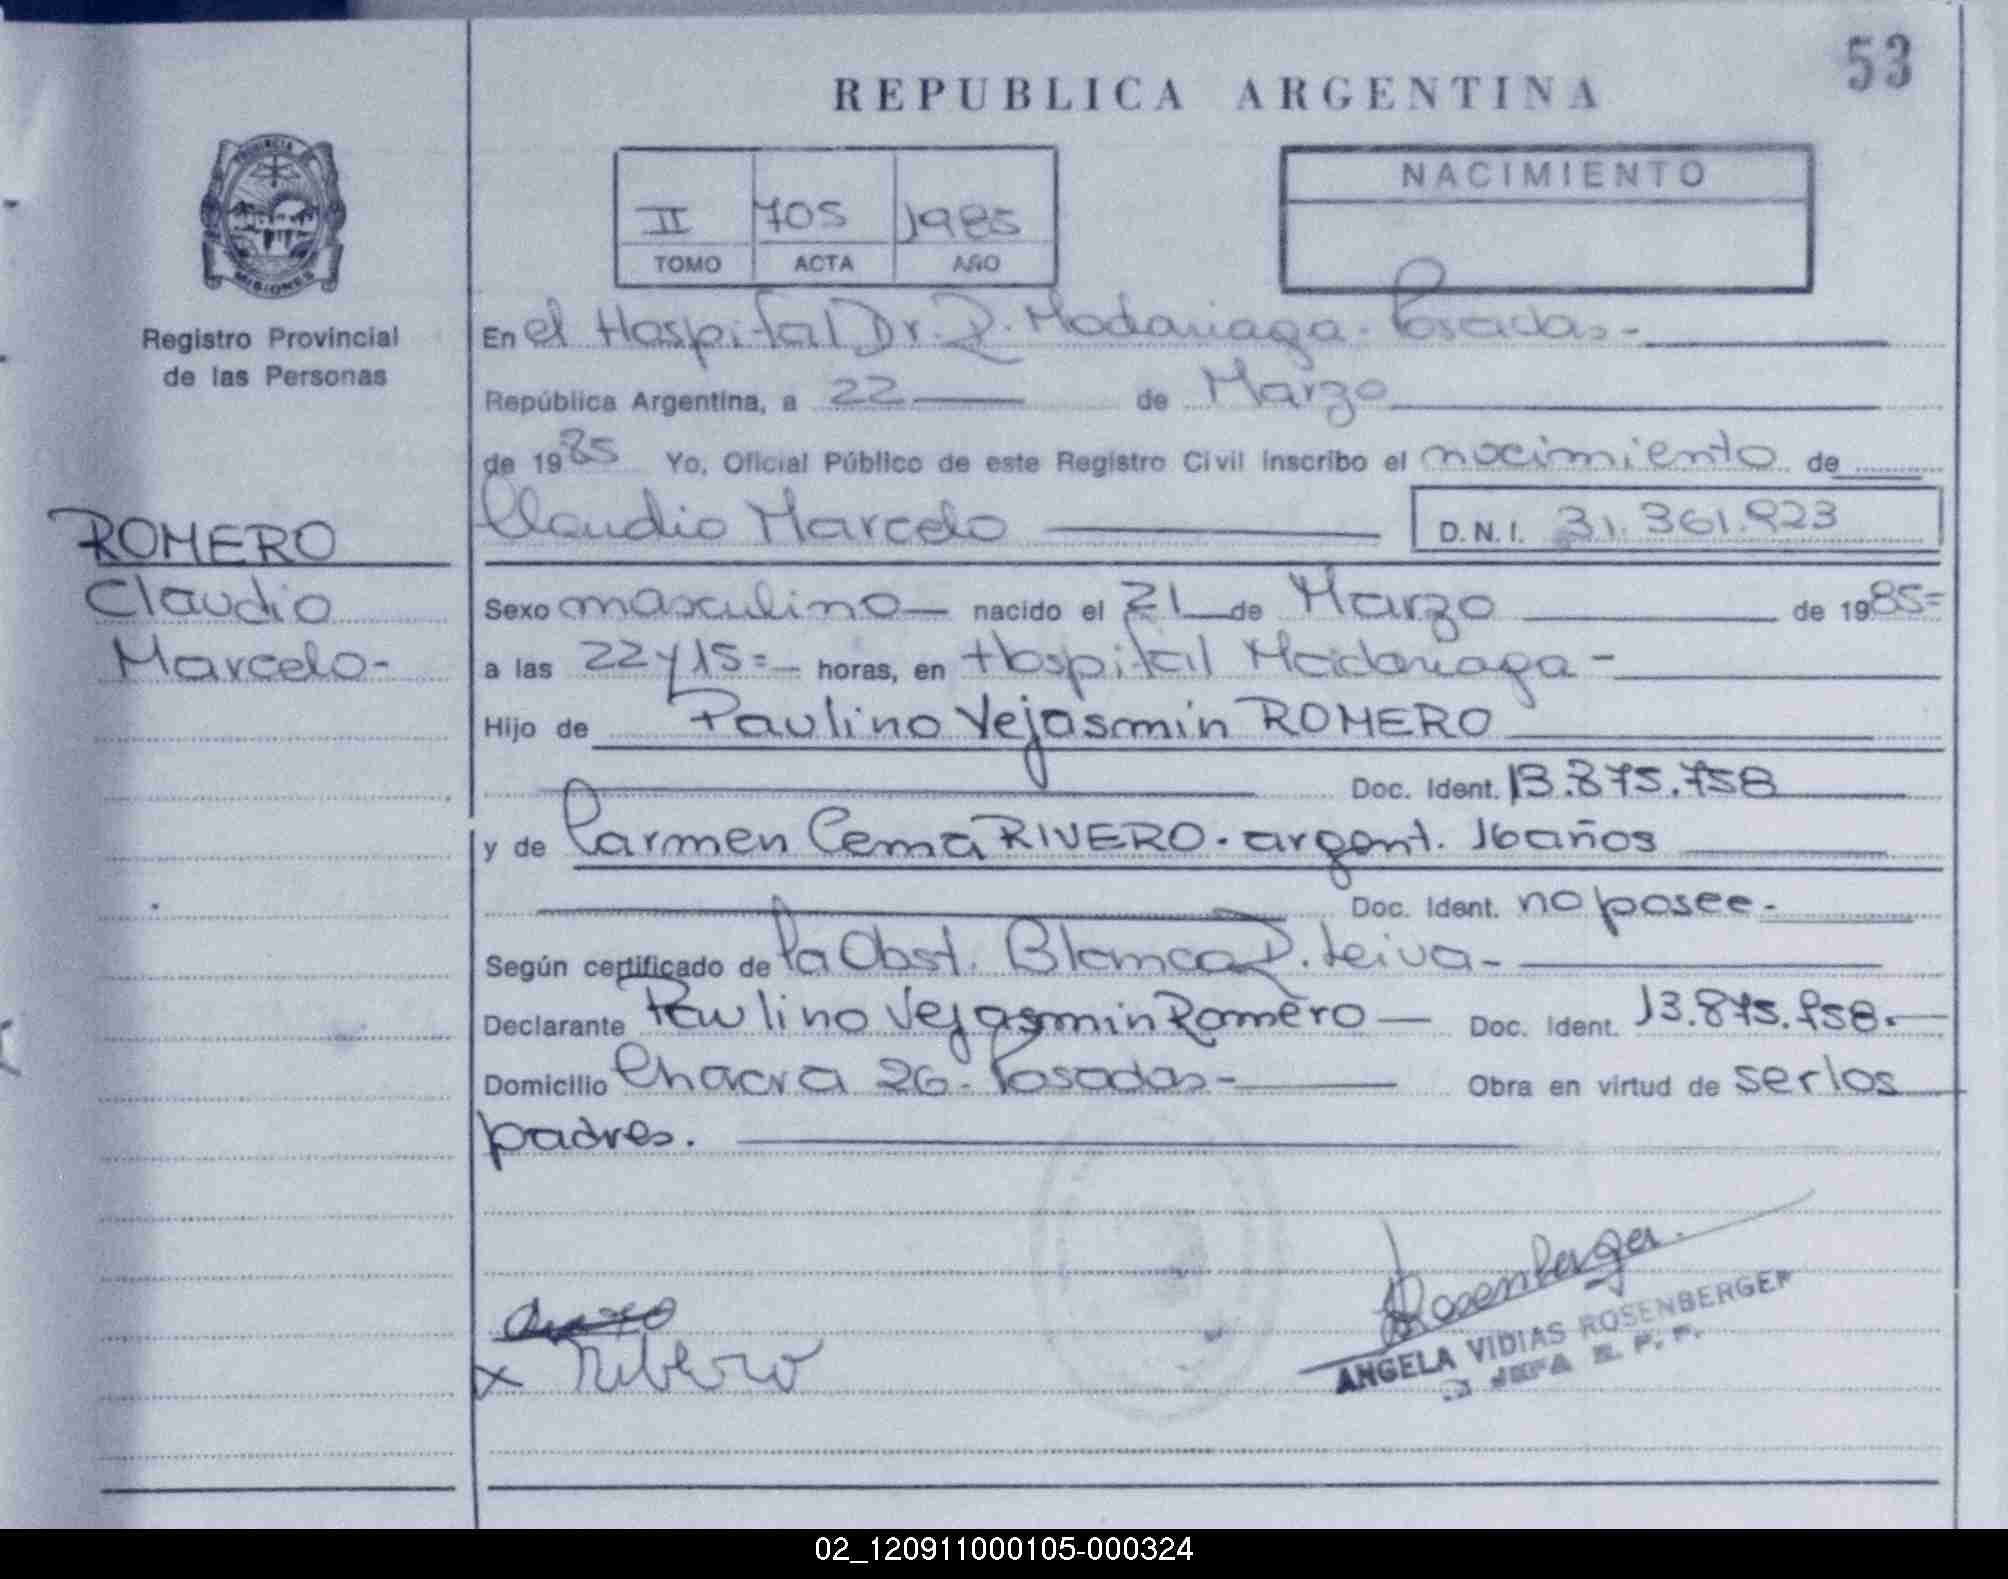 53
REPUBLICA ARGENTINA
PROVINCIA DE
MISIONES
Registro Provincial
de las Personas
II 705 1985
TOMO ACTA AÑO
NACIMIENTO
En el Hospital Dr. R. Madariaga. Posadas-
República Argentina, a 22 de Marzo
de 1985 Yo, Oficial Público de este Registro Civil inscribo el nacimiento de
Claudio Marcelo D.N.I. 31.361.923
ROMERO
Claudio
Marcelo-
Sexo masculino nacido el 21 de Marzo de 1985=
a las 22 y 15= horas, en Hospital Madariaga-
Hijo de Paulino Vejasmin ROMERO
Doc. Ident. 13.875.758
y de Carmen Cema RIVERO. argent. 16 años
Doc. Ident. no posee-
Según certificado de la Obst. Blanca R. Leiva-
Declarante Paulino Vejasmin Romero Doc. Ident. 13.875.958.
Domicilio Chacra 26. Posadas- Obra en virtud de ser los
padres.
x Ribero
Rosenberger
ANGELA VIDIAS ROSENBERGER
JEFA
02_120911000105-000324